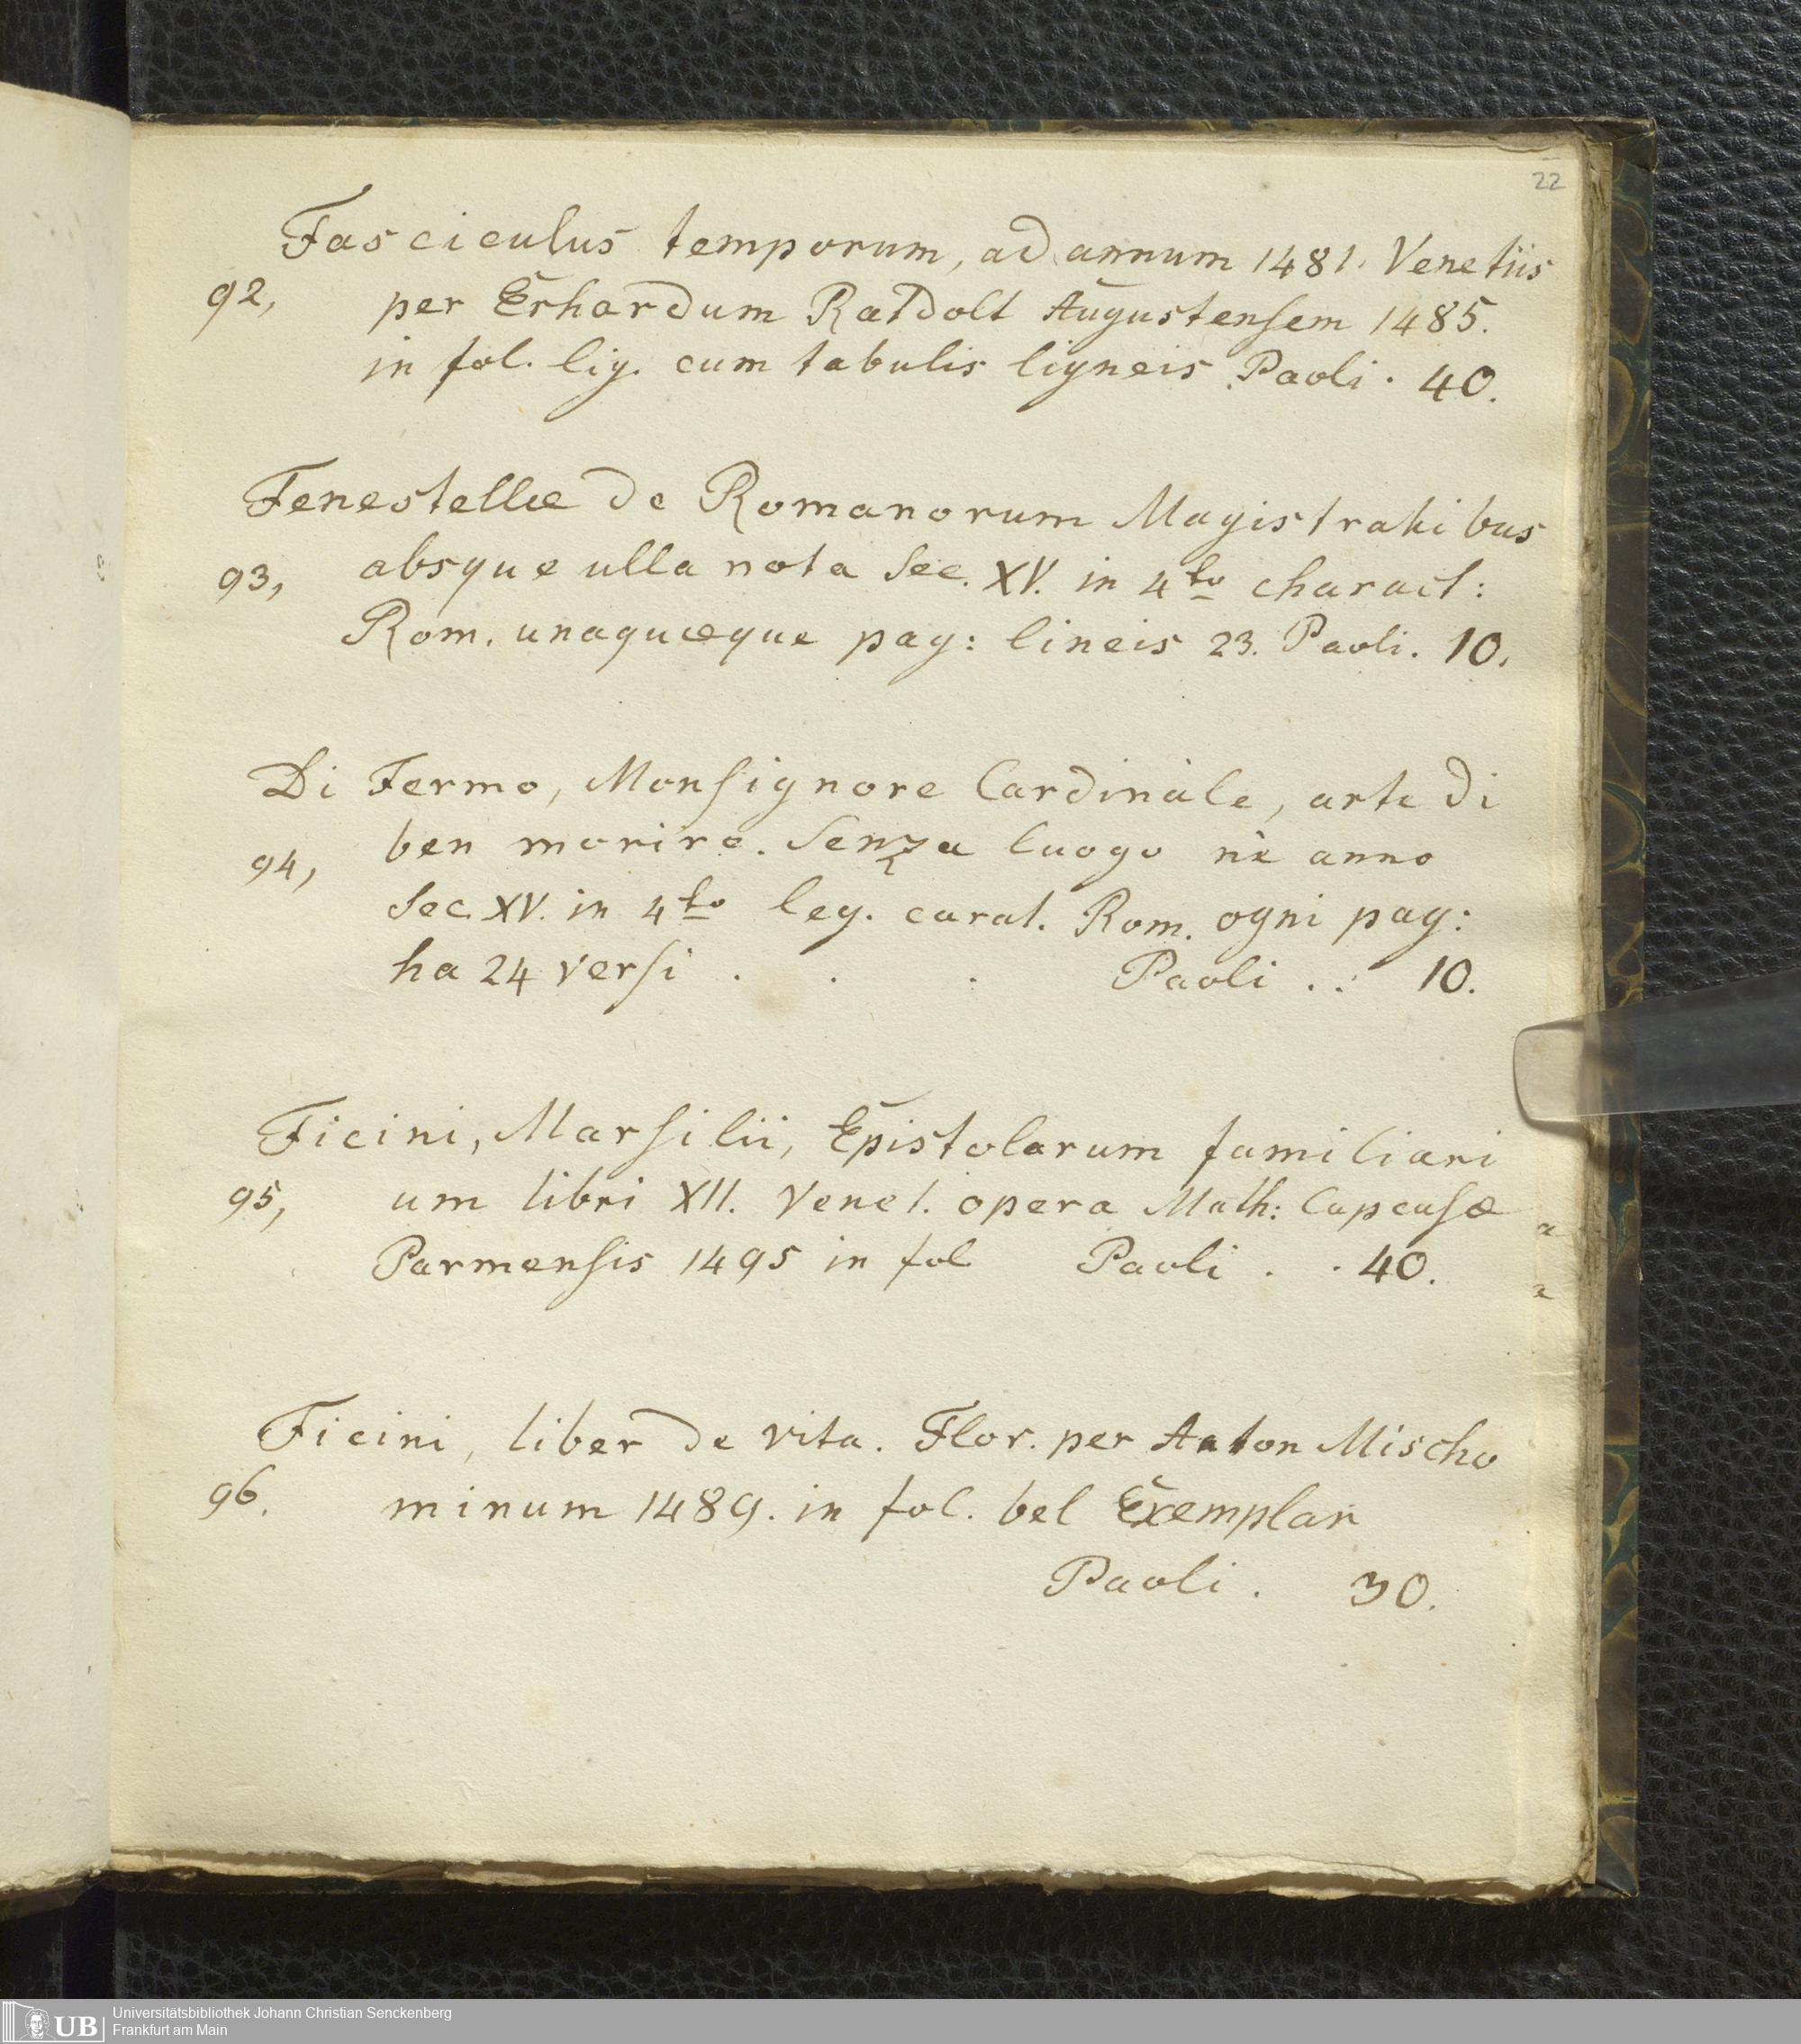 22
Fasciculus temporum, ad annum 1481. Venetiis
92, per Erhardum Ratdolt Augustensem 1485.
in fol. lig. cum tabulis ligneis Paoli. 40.
Fenestellæ de Romanorum Magistratibus
93, absque ulla nota Sec. XV. in 4to charact:
Rom. unaquæque pag: lineis 23. Paoli. 10.
Di Fermo, Monsignore Cardinale, arte di
94, ben morire. Senza luogo nè anno
Sec. XV. in 4to leg. carat. Rom. ogni pag:
ha 24 versi . . . Paoli . . 10.
Ficini, Marsilii, Epistolarum familiari
95, um libri XII. Venet. opera Math: Capcasæ
Parmensis 1495 in fol Paoli . . 40.
Ficini, liber de vita. Flor. per Anton Mischo
96. minum 1489. in fol. bel Exemplar
Paoli . 30.
UB
Universitätsbibliothek Johann Christian Senckenberg
Frankfurt am Main